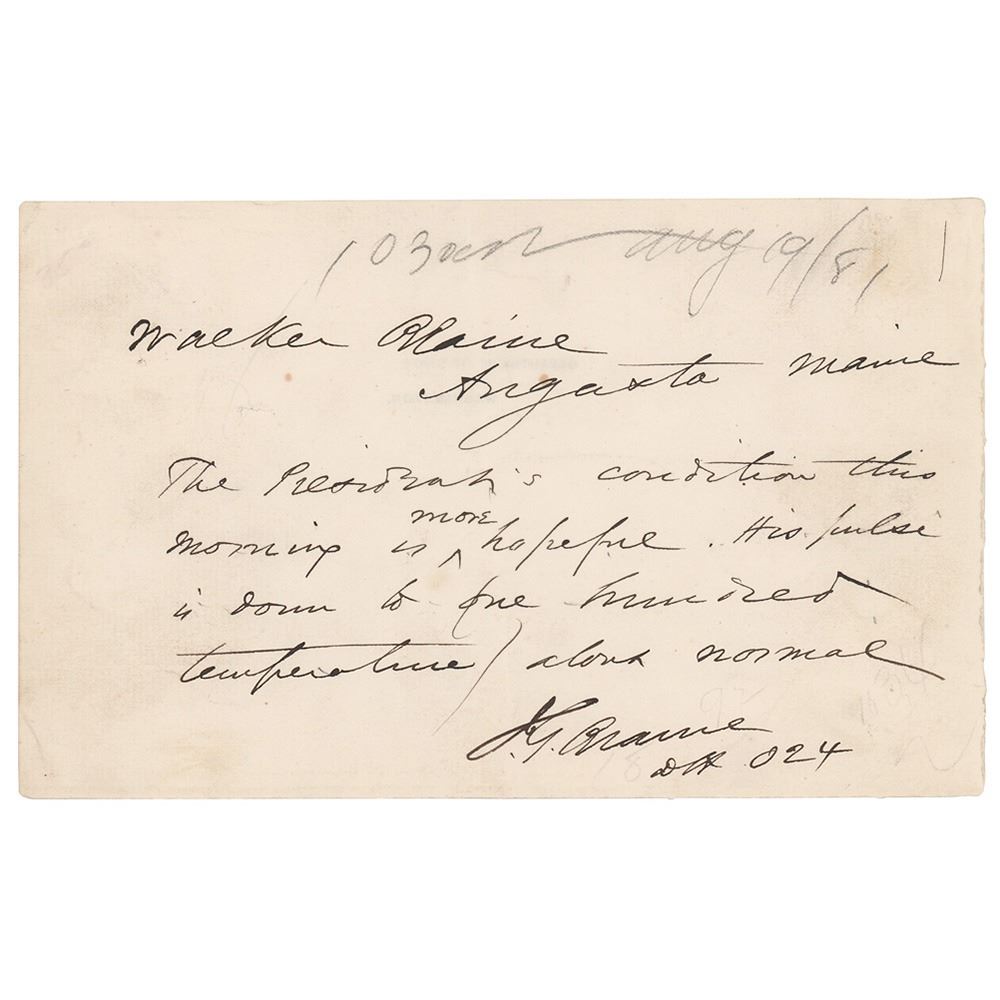 1030am Aug 19/81
Walker Blaine
Augusta Maine
The President's condition this
more
morning is ^ hopeful. His pulse
is down to one hundred
temperature / about normal
J.G. Blaine
DH 024